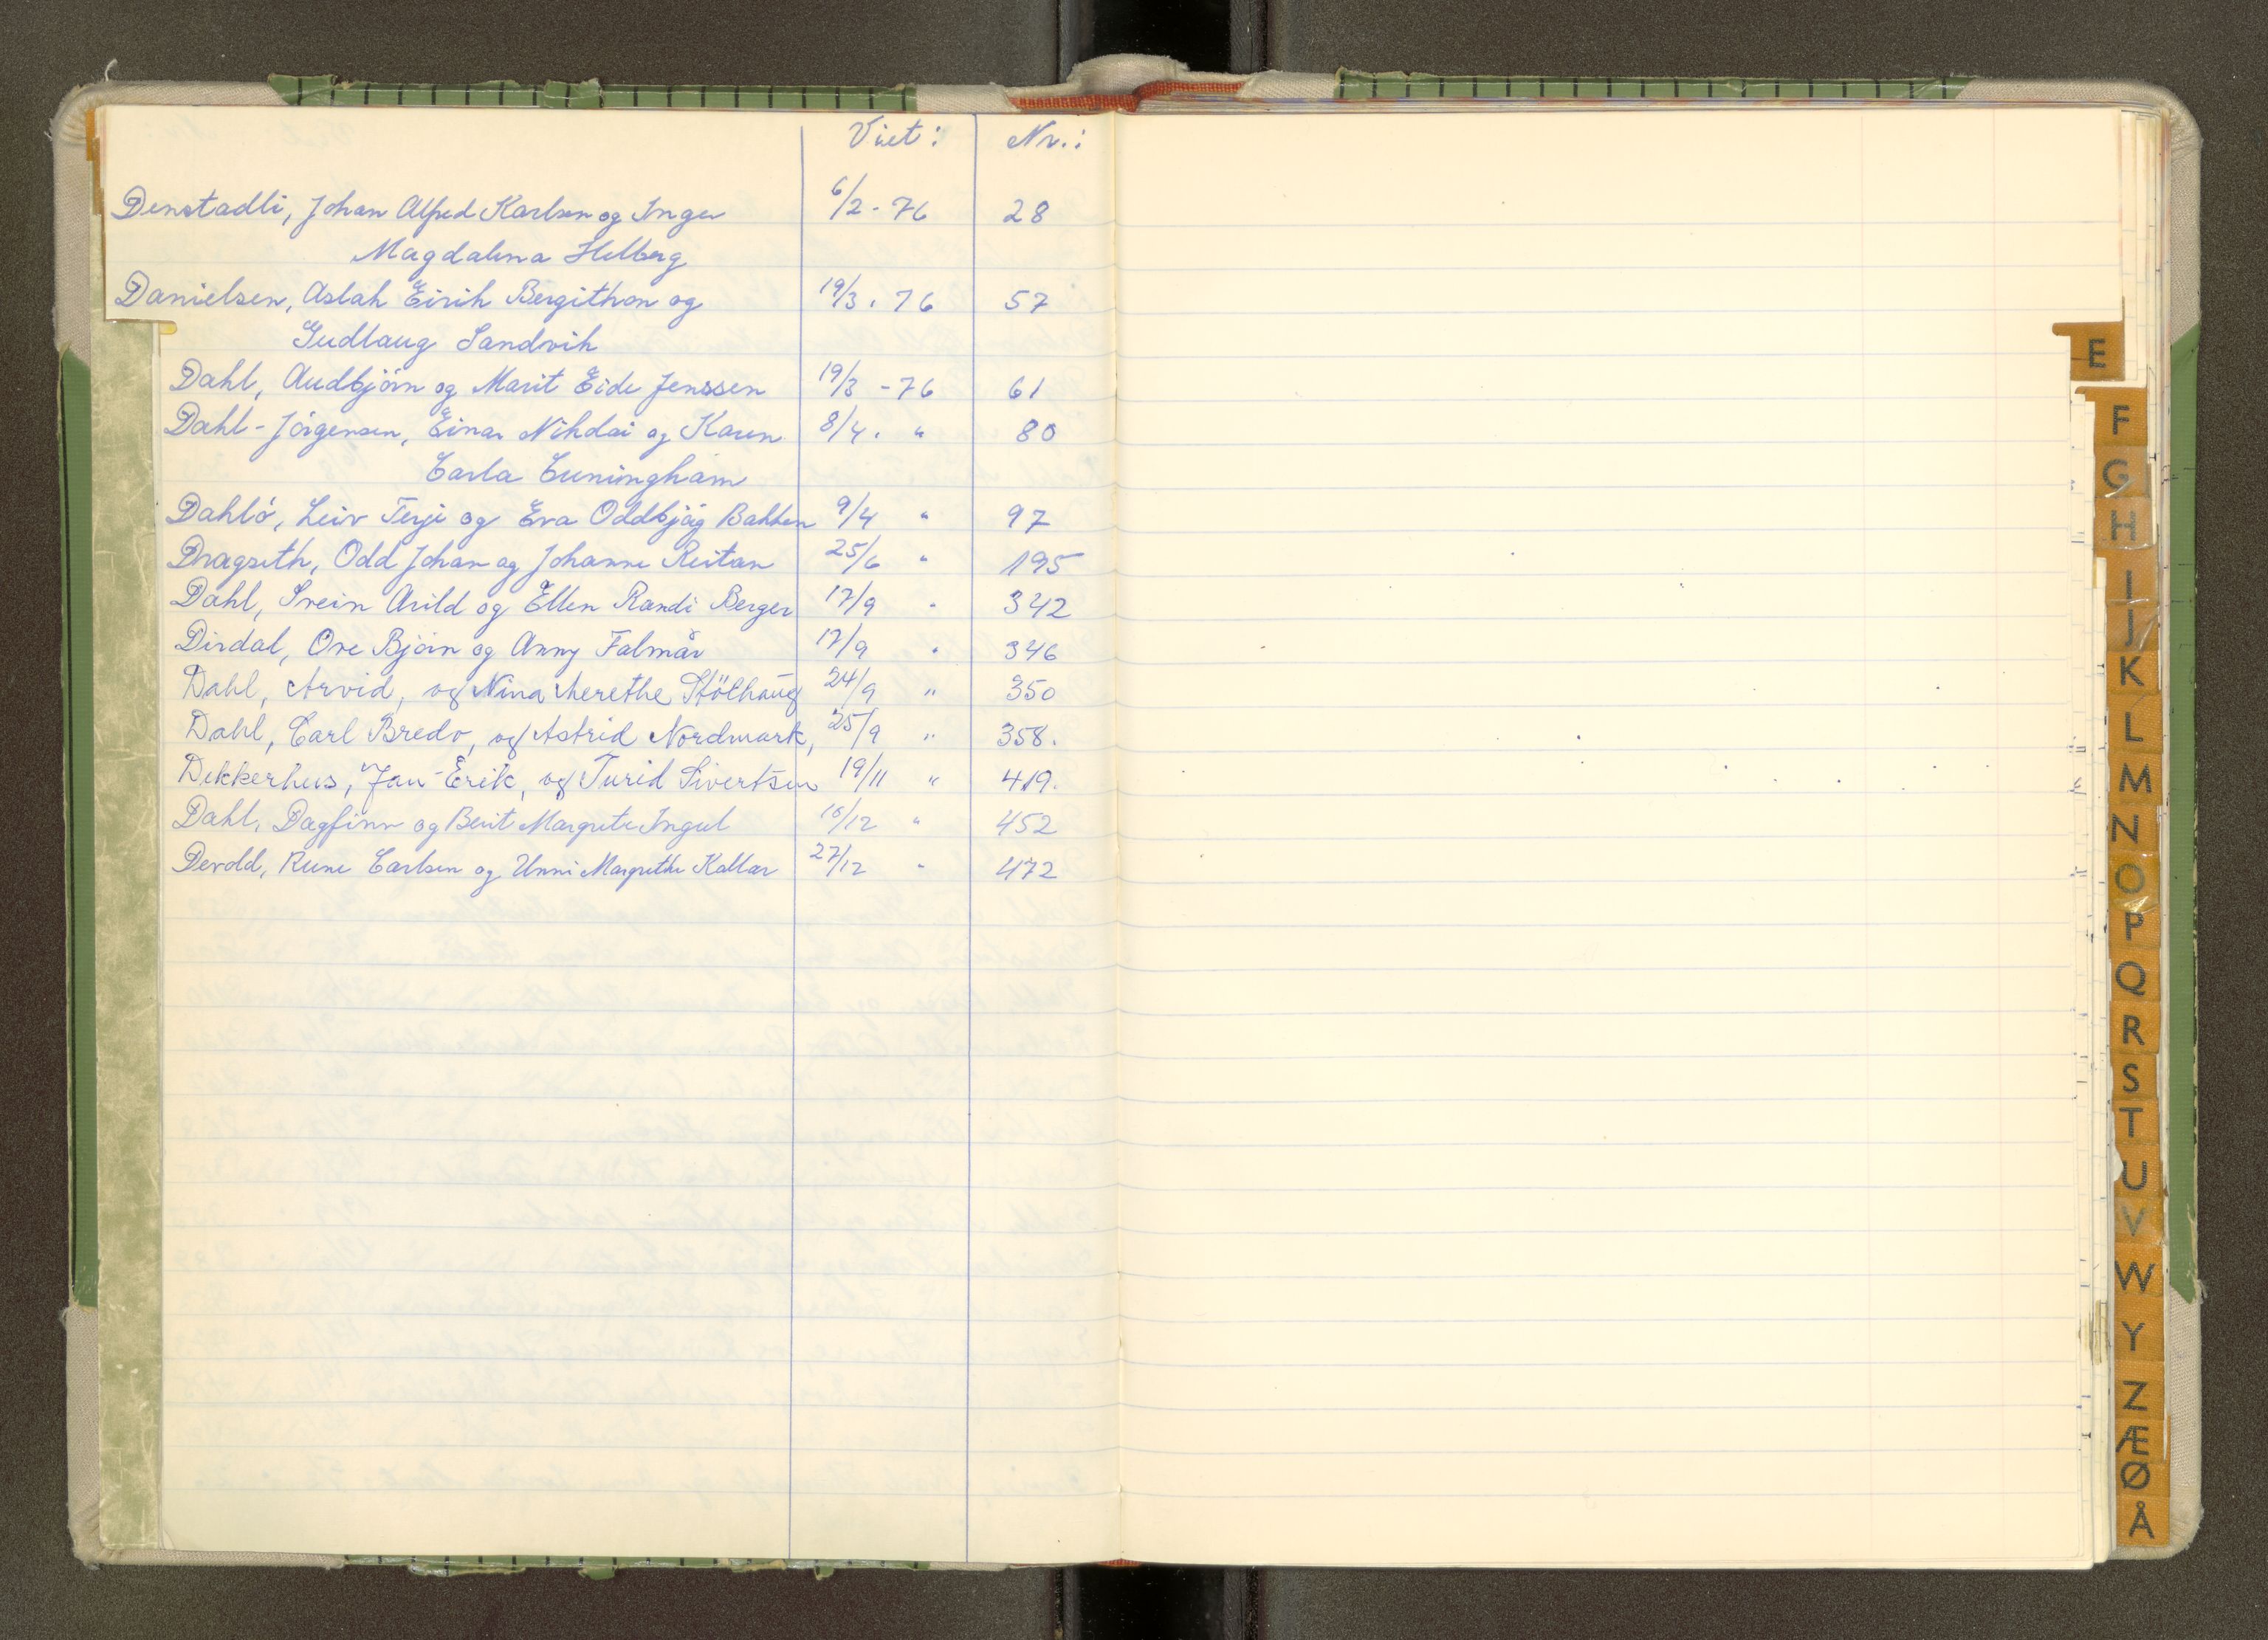 Viet: Nr.:
Denstadli, Johan Alfred Karlsen og Inger 6/2-76 28
Magdalena Helberg
Danielsen, Aslak Eirik Bergithon og 19/3.76 57
Gudlaug Sandvik
Dahl, Audbjörn og Marit Eide Jenssen 19/3-76 61
Dahl-Jörgensen, Einar Nikdai og Karen 8/4. " 80
Carla Cuningham
Dahlö, Leiv Terje og Eva Oddbjög Bakken 9/4 " 97
Dragseth, Odd Johan og Johanne Reitan 25/6 " 195
Dahl, Svein Arild og Ellen Randi Berger 17/9 " 342
Dirdal, Ove Bjöin og Anny Falmår 17/9 " 346
Dahl, Arvid, og Nina Merethe Stölhaug 24/9 " 350
Dahl, Carl Bredo, og Astrid Nordmark, 25/9 " 358.
Dekkerhus, Jan-Erik, og Turid Sivertsen 19/11 " 419.
Dahl, Dagfinn og Berit Margrete Ingul 10/12 " 452
Devold, Rune Carlsen og Unni Margrethe Kallar 27/12 " 472
E
F
G
H
I
J
K
L
M
N
O
P
Q
R
S
T
U
V
W
Y
Z
Æ
Ø
Å